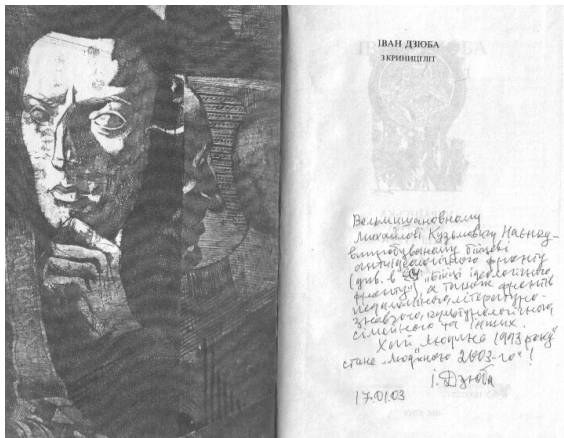 ІВАН ДЗЮБА
З КРИНИЦІ ЛІТ
Вельмишановному
Михайлові Кузьмовичу Наєнку –
випробуваному бійцеві
антиідеологічного фронту
(див. в "Бійці ідеологічного
фронту"), а також фронтів
педагогічного, літературо-
знавчого, культурологічного
сімейного та інших.
Хай "людина 1993 року"
стане "людиною 2003-го"!
І. Дзюба
17.01.03